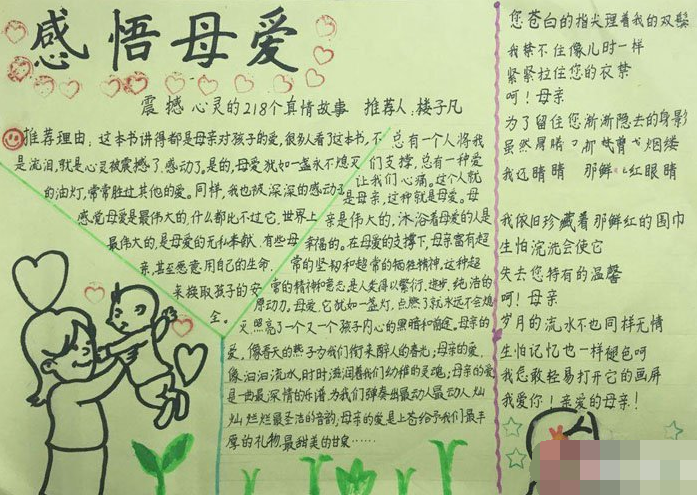 感悟母爱
震撼心灵的218个真情故事 推荐人:楼子凡
推荐理由:这本书讲得都是母亲对孩子的爱,很多人看了这本书,不
是流泪,就是心灵被震撼了.感动了。是的,母爱犹如一盏永不熄灭
的油灯,常常胜过其他的爱。同样,我也被深深的感动了
感觉母爱是最伟大的,什么都比不过它,世界上
最伟大的,是母爱的无私奉献.有些母
亲,甚至愿意用自己的生命.
来换取孩子的安
全。
总有一个人将我
们支撑,总有一种爱
让我们心痛。这个人就
是母亲,这种就是母爱。母
亲是伟大的,沐浴着母爱的人是
幸福的。在母爱的支撑下,母亲富有超
常的坚韧和超常的牺牲精神,这种超
常的精神和意志是人类得以繁衍,进步,纯洁的
原动力。母爱,它犹如一盏灯,点燃了就永远不会熄
灭.照亮了一个又一个孩子内心的黑暗和前途,母亲的
爱,像春天的燕子为我们衔来醉人的春光;母亲的爱,
像汩汩流水,时时滋润着我们幼稚的灵魂;母亲的爱
是一曲最深情的乐谱为我们弹奏出最动人最动人,灿
灿烂烂最圣洁的音韵,母亲的爱是上苍给予我们最丰
厚的礼物.最甜美的甘泉……
您苍白的指尖理着我的双鬓
我禁不住像儿时一样
紧紧拉住您的衣禁
呵!母亲
为了留住您渐渐隐去的身影
虽然晨曦
烟缕
我还
那鲜
红眼睛
我依旧珍藏着那鲜红的围巾
生怕浣洗会使它
失去您特有的温馨
呵!母亲
岁月的流水不也同样无情
生怕记忆也一样褪色呵
我怎敢轻易打开它的画屏
我爱你!亲爱的母亲!